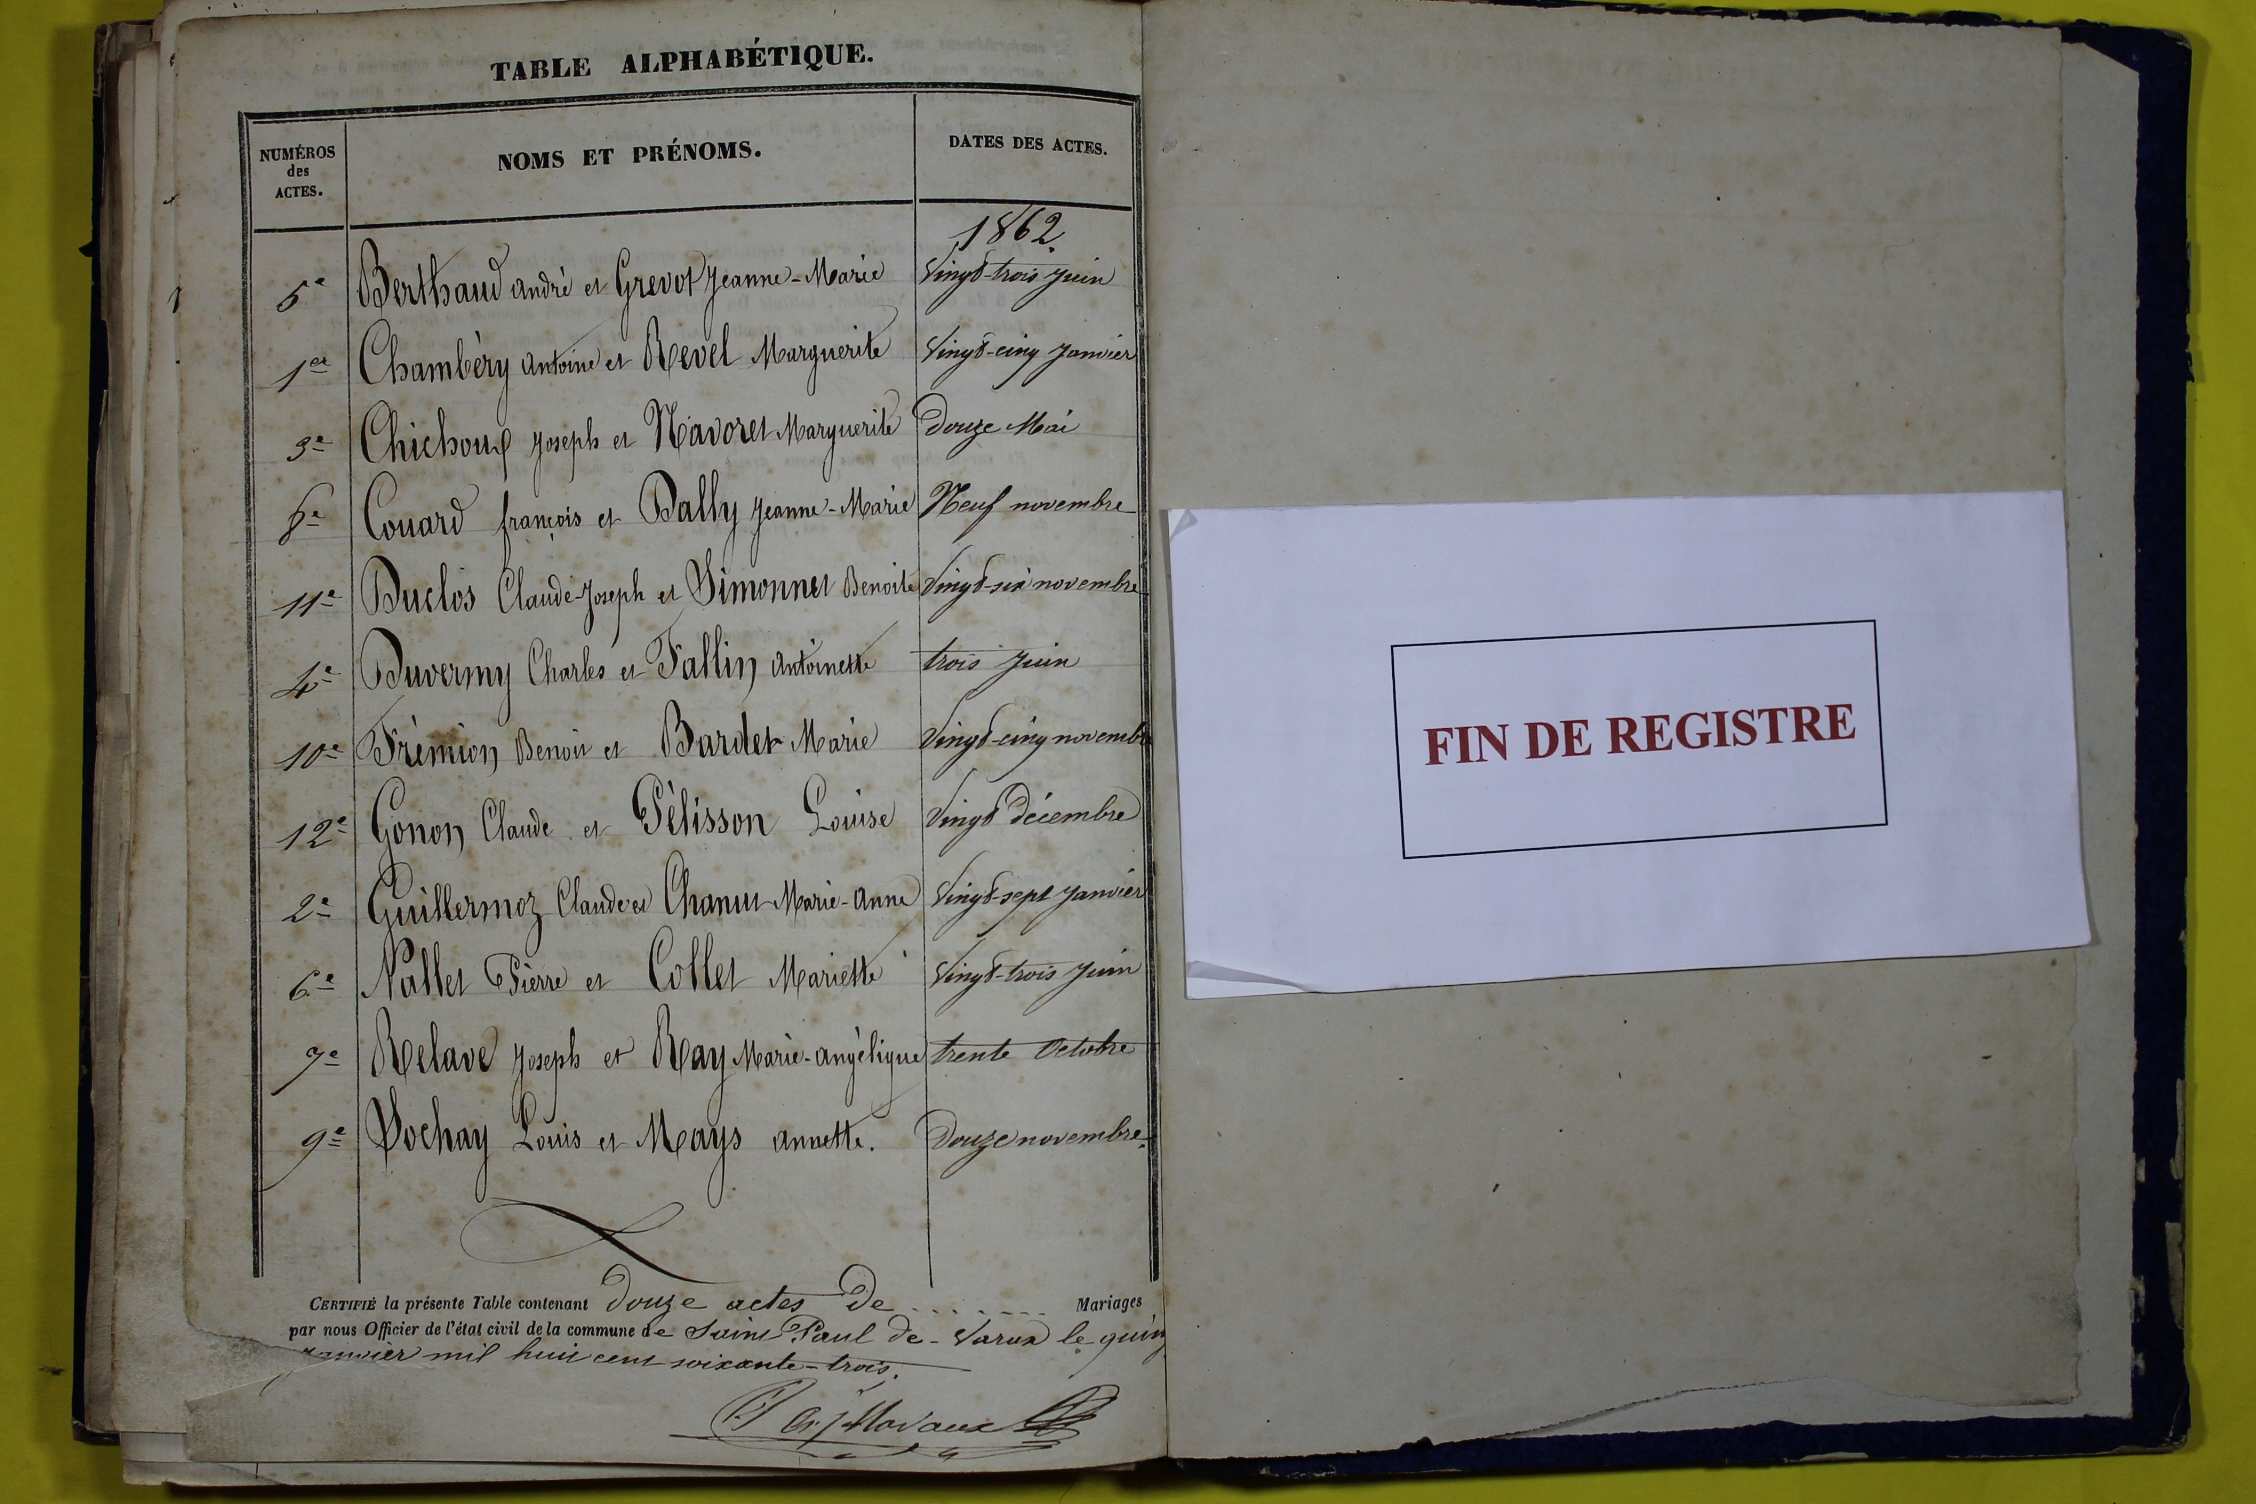 TABLE ALPHABÉTIQUE.
NUMÉROS des ACTES. NOMS ET PRÉNOMS. DATES DES ACTES.
1862.
5e Berthaud andré et Grevot Jeanne-Marie Vingt-trois Juin
1er Chambéry antoine et Revel Marguerite Vingt-cinq Janvier
3e Chichoux Joseph et Navoret Marguerite Douze Mai
8e Couard françois et Dally Jeanne-Marie Neuf novembre
11e Duclos Claude-Joseph et Simonnet Benoite Vingt-six novembre
4e Duvermy Charles et Fallin antoinette trois Juin
10e Frémion Benoit et Bardet Marie Vingt-cinq novembre
12e Gonon Claude et Pélisson Louise Vingt décembre
2e Guillermoz Claude et Chanut Marie-anne Vingt-sept Janvier
6e Nallet Pierre et Collet Mariette Vingt-trois Juin
7e Relave Joseph et Ray Marie-angélique trente Octobre
9e Vochay Louis et Mays annette. Douze novembre.
CERTIFIÉ la présente Table contenant douze actes de ........ Mariages
par nous Officier de l'état civil de la commune de Saint Paul de-Varax le quin
janvier mil huit cent soixante-trois.
FIN DE REGISTRE